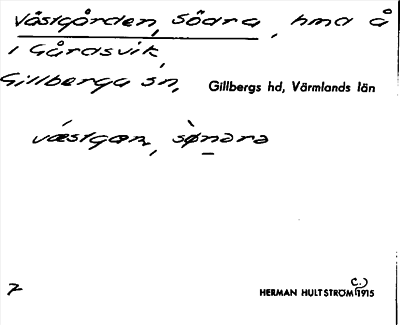 Västgården, Södra, hmd å
i Gårdsvik,
Gillberga sn, Gillbergs hd, Värmlands län
væstgαrn, sønᴅrᴅ
7 HERMAN HULTSTRÖM (c.) 1915